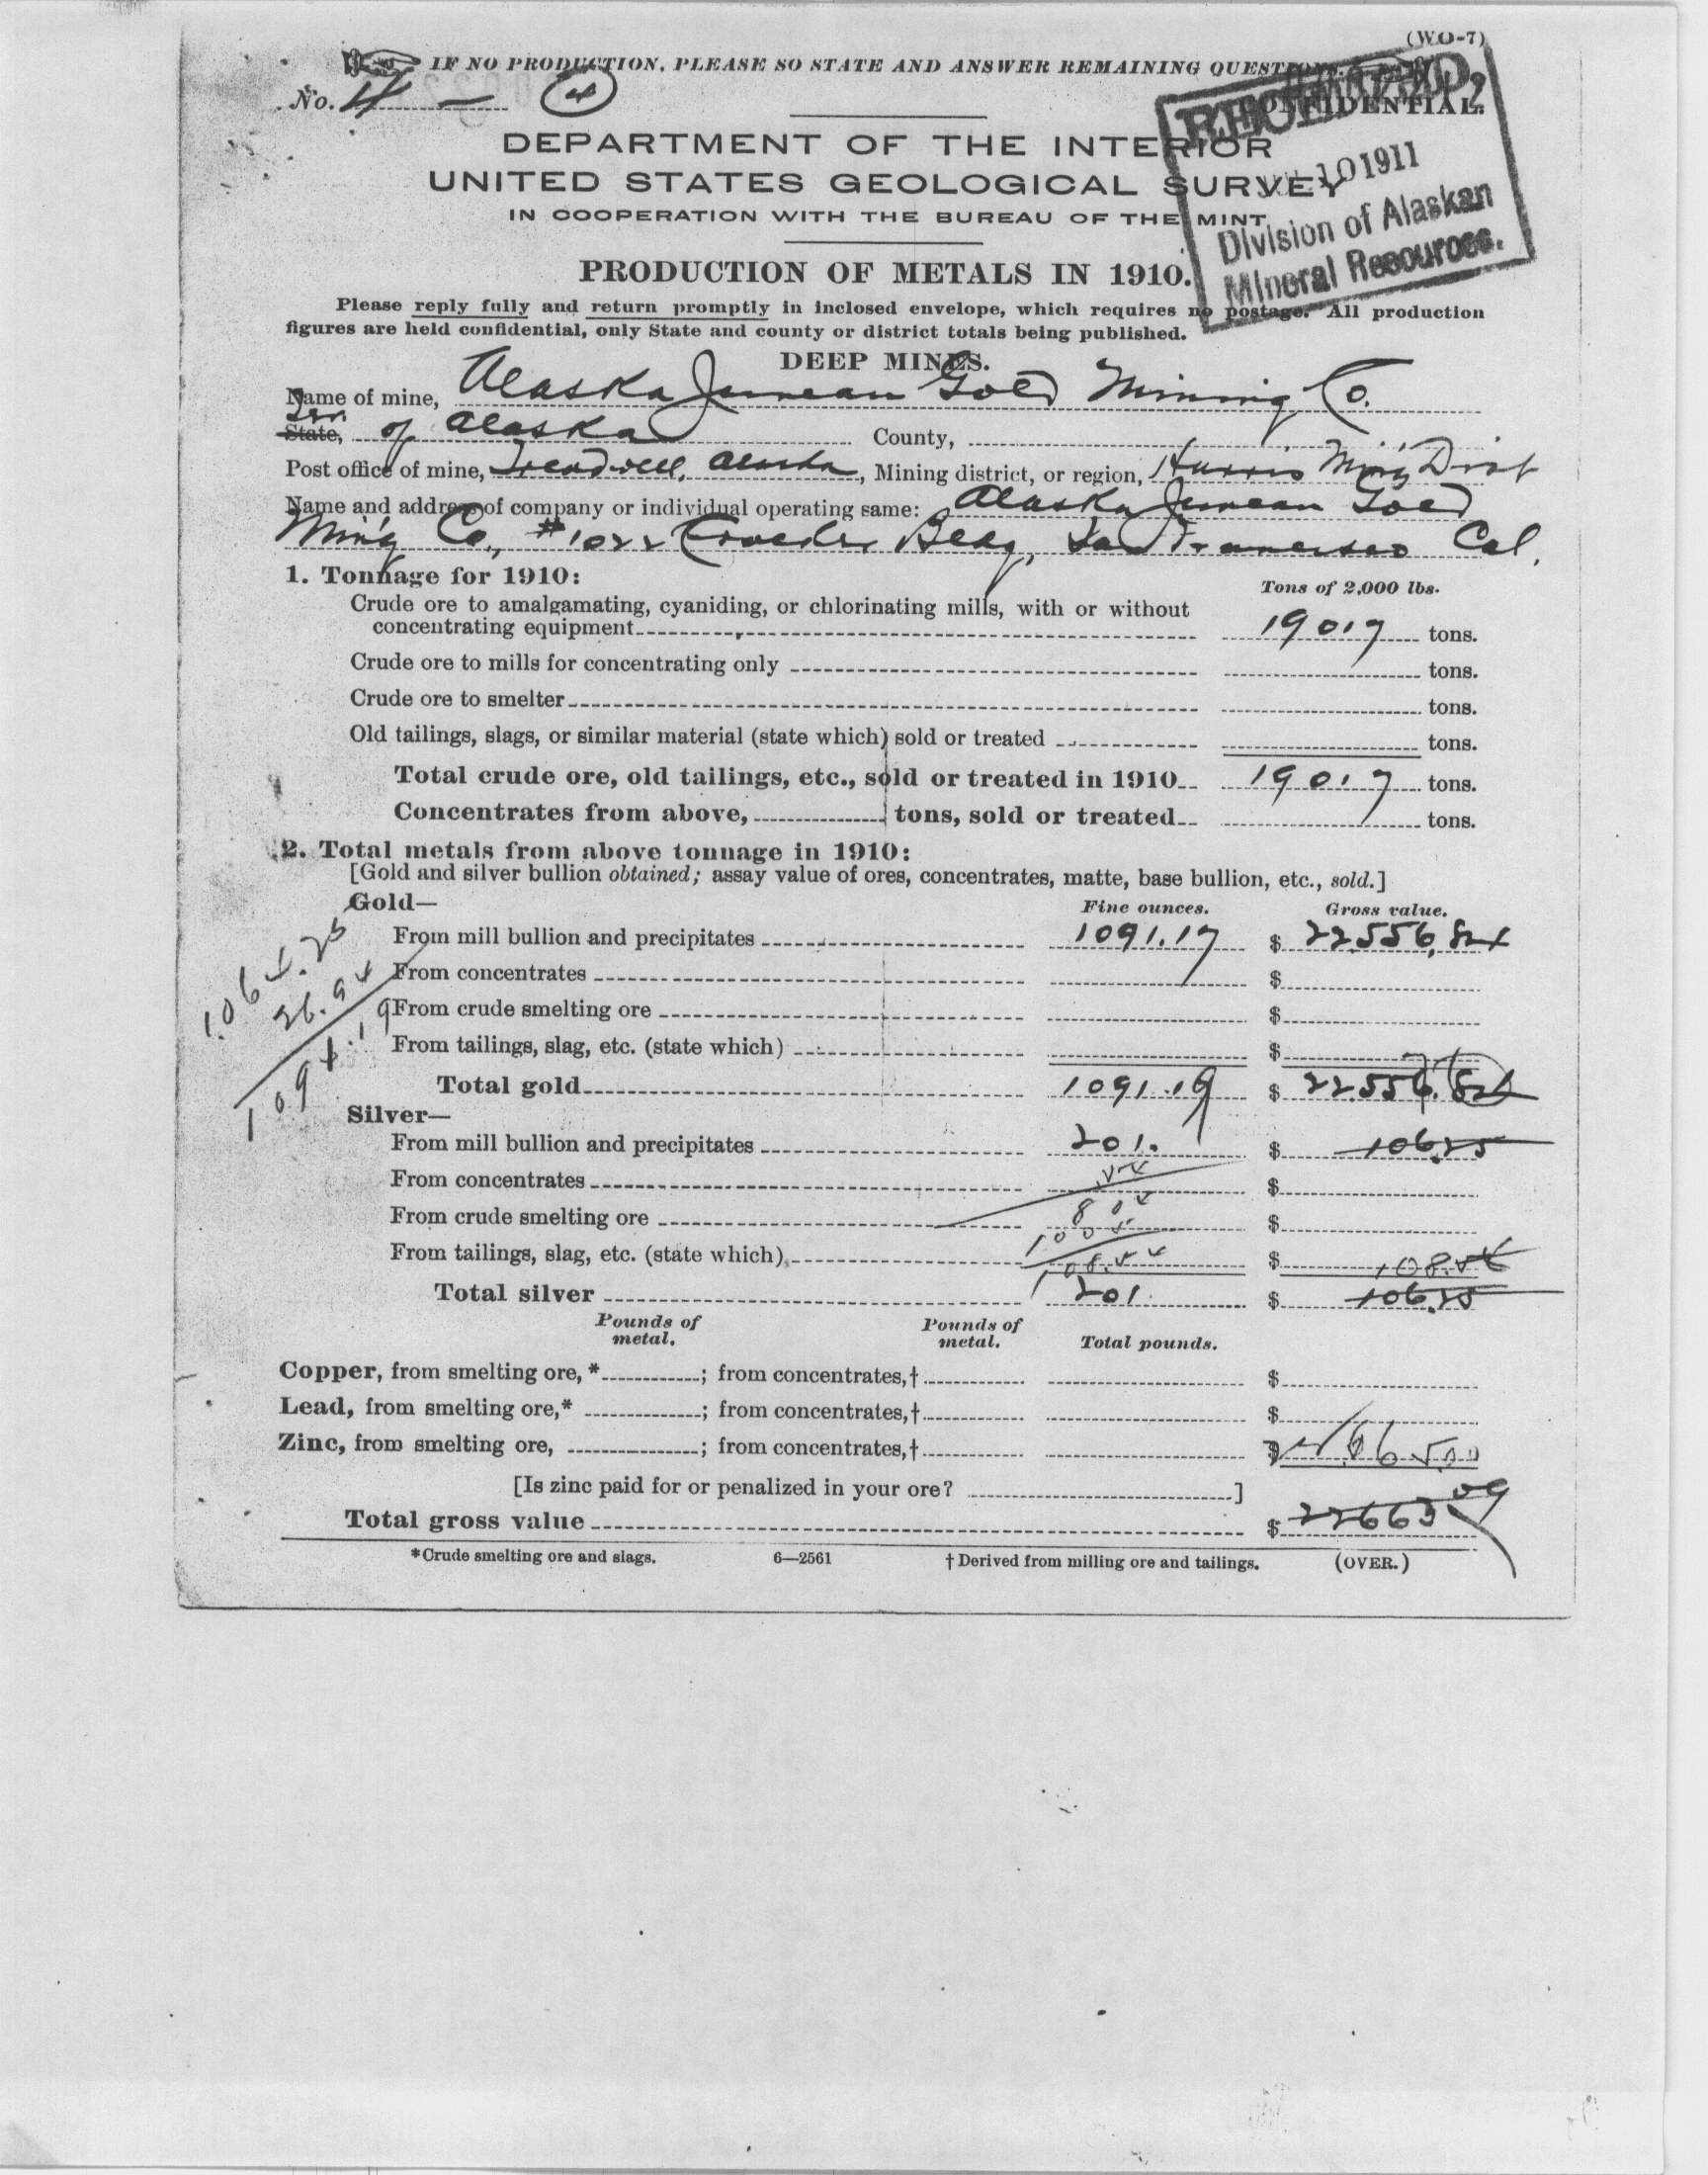 (WO-7)
IF NO PRODUCTION, PLEASE SO STATE AND ANSWER REMAINING
No. 4 — 4
CONFIDENTIAL.
DEPARTMENT OF THE INTERIOR
UNITED STATES GEOLOGICAL SURVEY
IN COOPERATION WITH THE BUREAU OF THE MINT
RECEIVED,
10 1911
Division of Alaskan
Mineral Resources.
PRODUCTION OF METALS IN 1910.
Please reply fully and return promptly in inclosed envelope, which requires no postage. All production
figures are held confidential, only State and county or district totals being published.
DEEP MINES.
Name of mine, Alaska Juneau Gold Mining Co.
Ter.
State, of Alaska County,
Post office of mine, Treadwell, Alaska, Mining district, or region, Harris Min'g Dist
Name and address of company or individual operating same: Alaska Juneau Gold
Min'g Co., #1022 Crocker Bldg, San Francisco Cal.
1. Tonnage for 1910:
Tons of 2,000 lbs.
Crude ore to amalgamating, cyaniding, or chlorinating mills, with or without
concentrating equipment 19017 tons.
Crude ore to mills for concentrating only tons.
Crude ore to smelter tons.
Old tailings, slags, or similar material (state which) sold or treated tons.
Total crude ore, old tailings, etc., sold or treated in 1910 19017 tons.
Concentrates from above, tons, sold or treated tons.
2. Total metals from above tonnage in 1910:
[Gold and silver bullion obtained; assay value of ores, concentrates, matte, base bullion, etc., sold.]
Gold—
Fine ounces. Gross value.
From mill bullion and precipitates 1091.17 $ 22,556.84
From concentrates $
From crude smelting ore $
From tailings, slag, etc. (state which) $
1064.25
26.94
1091.19
Total gold 1091.19 $ 22,556.
Silver—
From mill bullion and precipitates 201. $ 106.25
From concentrates $
From crude smelting ore $
From tailings, slag, etc. (state which) 108.54 $ 108.54
Total silver 201. $ 106.25
Pounds of metal. Pounds of metal. Total pounds.
Copper, from smelting ore,* ; from concentrates,† $
Lead, from smelting ore,* ; from concentrates,† $
Zinc, from smelting ore, ; from concentrates,† $
[Is zinc paid for or penalized in your ore? ]
Total gross value $ 22663 09
*Crude smelting ore and slags. 6—2561 † Derived from milling ore and tailings. (OVER.)